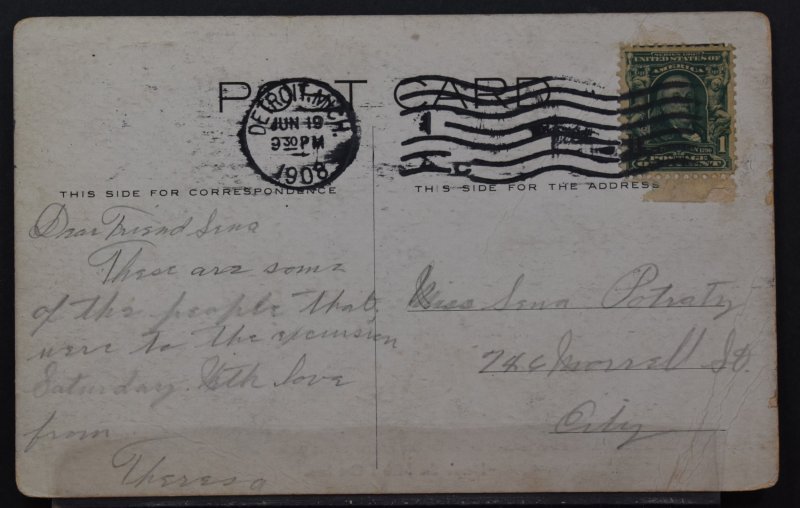 POST CARD
DETROIT, MICH.
JUN 19
9 30 PM
1908
SERIES 1902
UNITED STATES OF
AMERICA
1
POSTAGE
THIS SIDE FOR CORRESPONDENCE
THIS SIDE FOR THE ADDRESS
Dear Friend Sena
These are some
of the people that
were to the excursion
Saturday. With love
from
Theresa
Miss Sena
Morrell St.
City